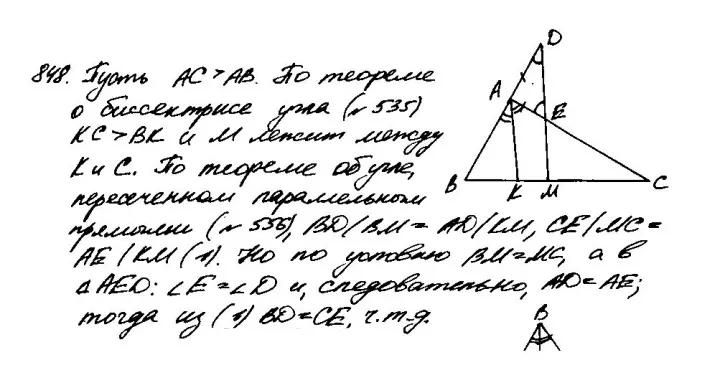 848. Пусть AC > AB. По теореме
о биссектрисе угла (№ 535)
KC > BK и M лежит между
K и C. По теореме об угле,
пересеченном параллельными
прямыми (№ 556), BD/BM = AD/KM, CE/MC =
AE/KM (1). Но по условию BM = MC, а в
△AED: ∠E = ∠D и, следовательно, AD = AE;
тогда из (1) BD = CE, ч.т.д.
D
A
E
B
K
M
C
B